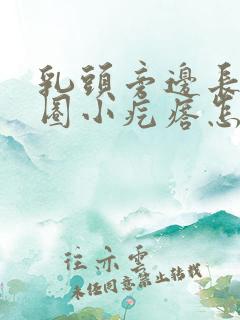 乳頭旁邊長
圈小疙瘩怎
往亦雲
未经同意禁止转载